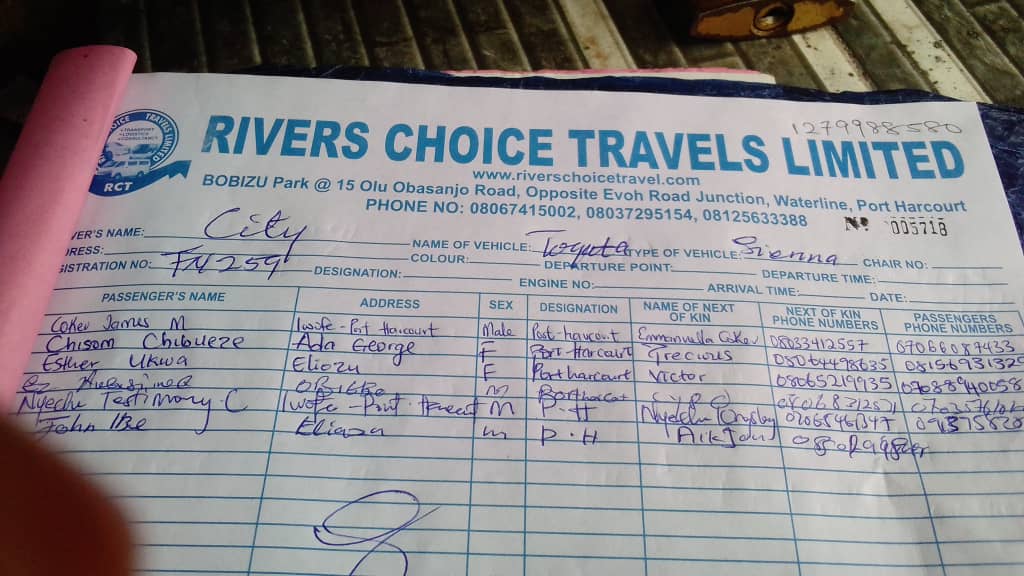 1279988580
RIVERS CHOICE TRAVELS LIMITED
TRANSPORT
LOGISTICS
RCT
www.riverschoicetravel.com
BOBIZU Park @ 15 Olu Obasanjo Road, Opposite Evoh Road Junction, Waterline, Port Harcourt
PHONE NO: 08067415002, 08037295154, 08125633388
Nº 005718
VER'S NAME: City NAME OF VEHICLE: Toyota TYPE OF VEHICLE: Sienna CHAIR NO:
RESS: COLOUR: DEPARTURE POINT: DEPARTURE TIME:
GISTRATION NO: FN259 DESIGNATION: ENGINE NO: ARRIVAL TIME: DATE:
PASSENGER'S NAME ADDRESS SEX DESIGNATION NAME OF NEXT OF KIN NEXT OF KIN PHONE NUMBERS PASSENGERS PHONE NUMBERS
Coker James M Iwofe - Port Harcourt Male Port-harcourt Emmanuella Coker 08033412557 07068059433
Chisom Chibueze Ada George F Port Harcourt Precious 08064498635
Esther Ukwa Eliozu F Port harcourt Victor 08065219935
M
Nyeche Testimony. C Iwofe - Port. M P.H Nyeche
John m P.H